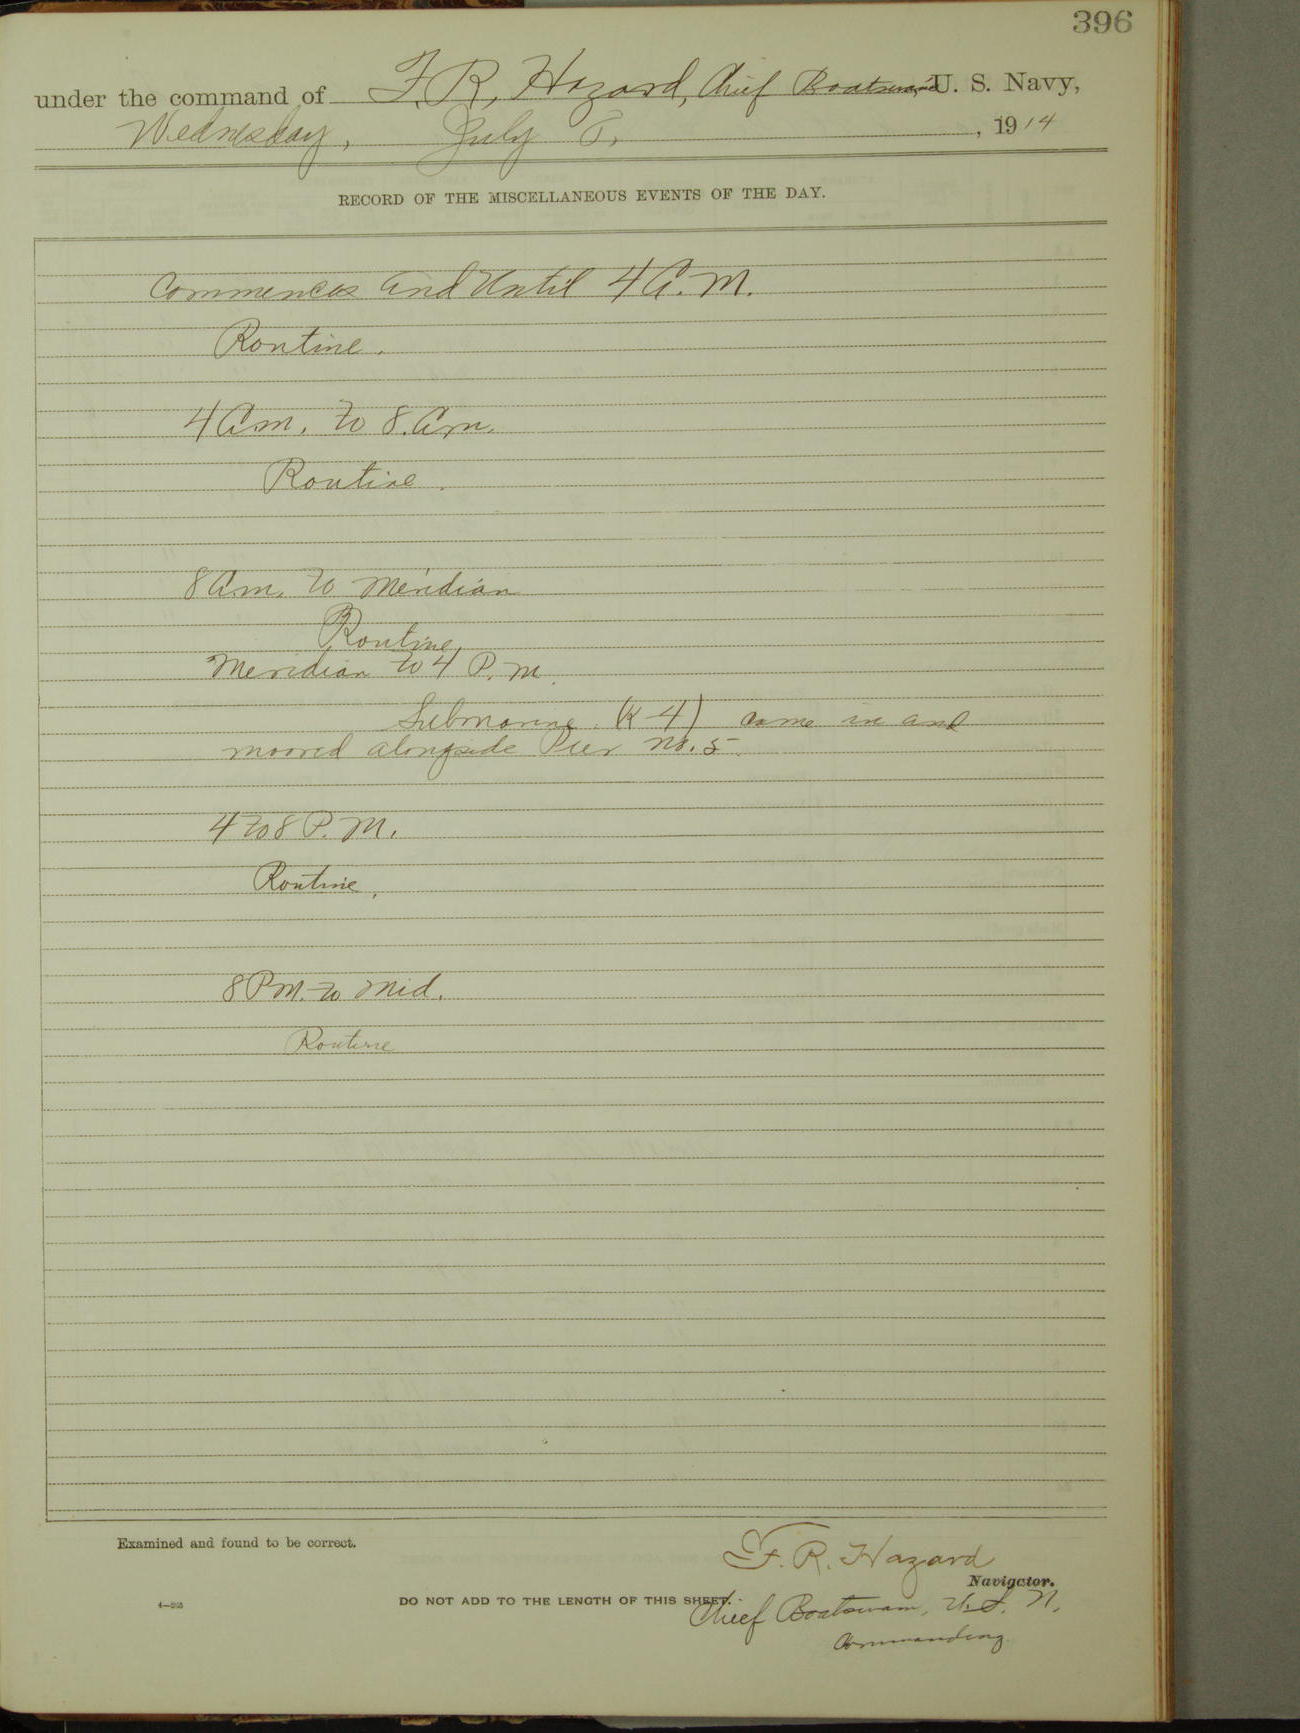 396
under the command of F. R. Hazard, Chief Boatswain U. S. Navy,
Wednesday, July 8, , 1914
RECORD OF THE MISCELLANEOUS EVENTS OF THE DAY.
Commences and Until 4 A.M.
Routine.
4 A.m. to 8. A.m.
Routine.
8 A.m. to Meridian
Routine,
Meridian to 4 P. M.
Submarine (K-4) came in and
moored alongside Pier No. 5.
4 to 8 P. M.
Routine,
8 P.M. to Mid.
Routine
Examined and found to be correct.
F. R. Hazard
Navigator.
4—255
DO NOT ADD TO THE LENGTH OF THIS SHEET.
Chief Boatswain, U. S. N.
Commanding.